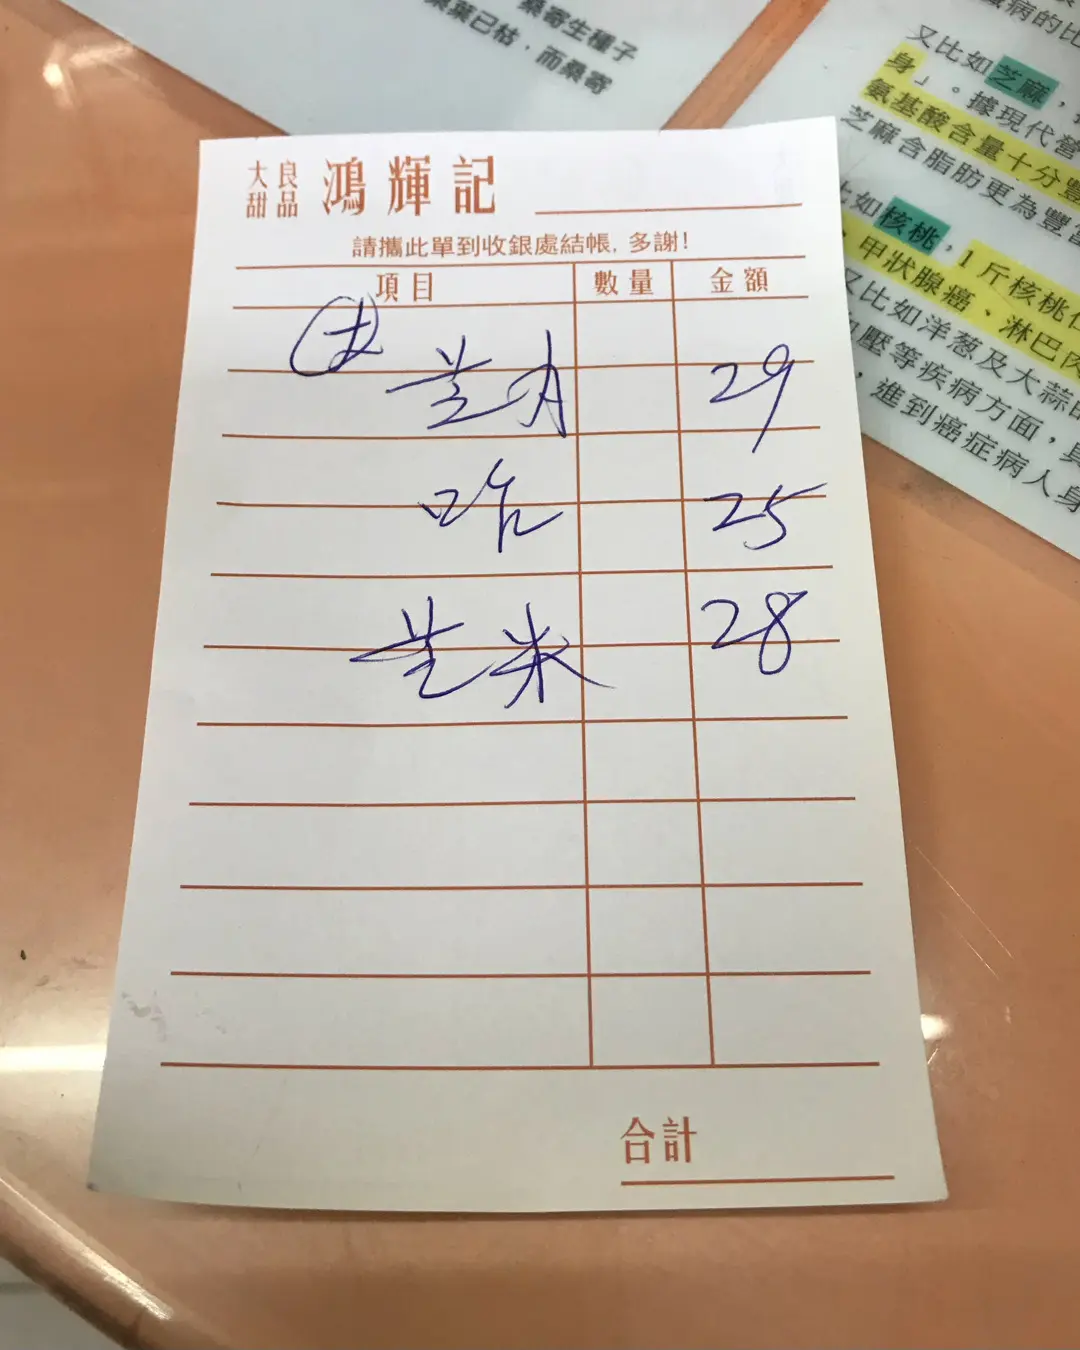 桑寄生種子
桑葉已枯，而桑寄
病的比
又比如芝麻，
身」。據現代營
氨基酸含量十分豐
芝麻含脂肪更為豐富
比如核桃，1斤核桃仁
甲狀腺癌、淋巴肉
又比如洋葱及大蒜
壓等疾病方面，具
進到癌症病人身
大良 甜品 鴻輝記
請攜此單到收銀處結帳，多謝！
項目 數量 金額
29
25
28
合計